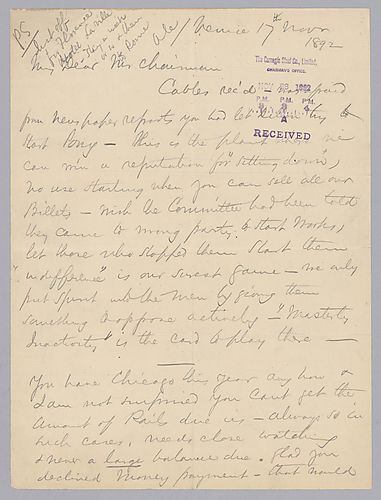 PS
just off
for Florence
Hotel
a week
Rome
Venice 17th Novr
1892
My Dear Mr Chairman
The Carnegie Steel Co., Limited,
CHAIRMAN'S OFFICE.
NOV 28 1892
P.M. P.M.
A
RECEIVED
Cables rec'd
from Newspaper reports you had let to
start This is the plant we
can win a reputation for "Sitting down",
no use starting when you can sell all our
Billets — Wish the Committee had been told
they came to wrong party to start Works,
let those who stopped them Start them
"indifference" is our surest game — we only
put spunk into the men by giving them
something to oppose actively — "Masterly
Inactivity" is the card to play there —
You have Chicago this year any how &
I am not surprised you Can't get the
amount of Rails due us — always so in
such cases, needs close watching
& never a large balance due. Glad you
declined Money payment — that would